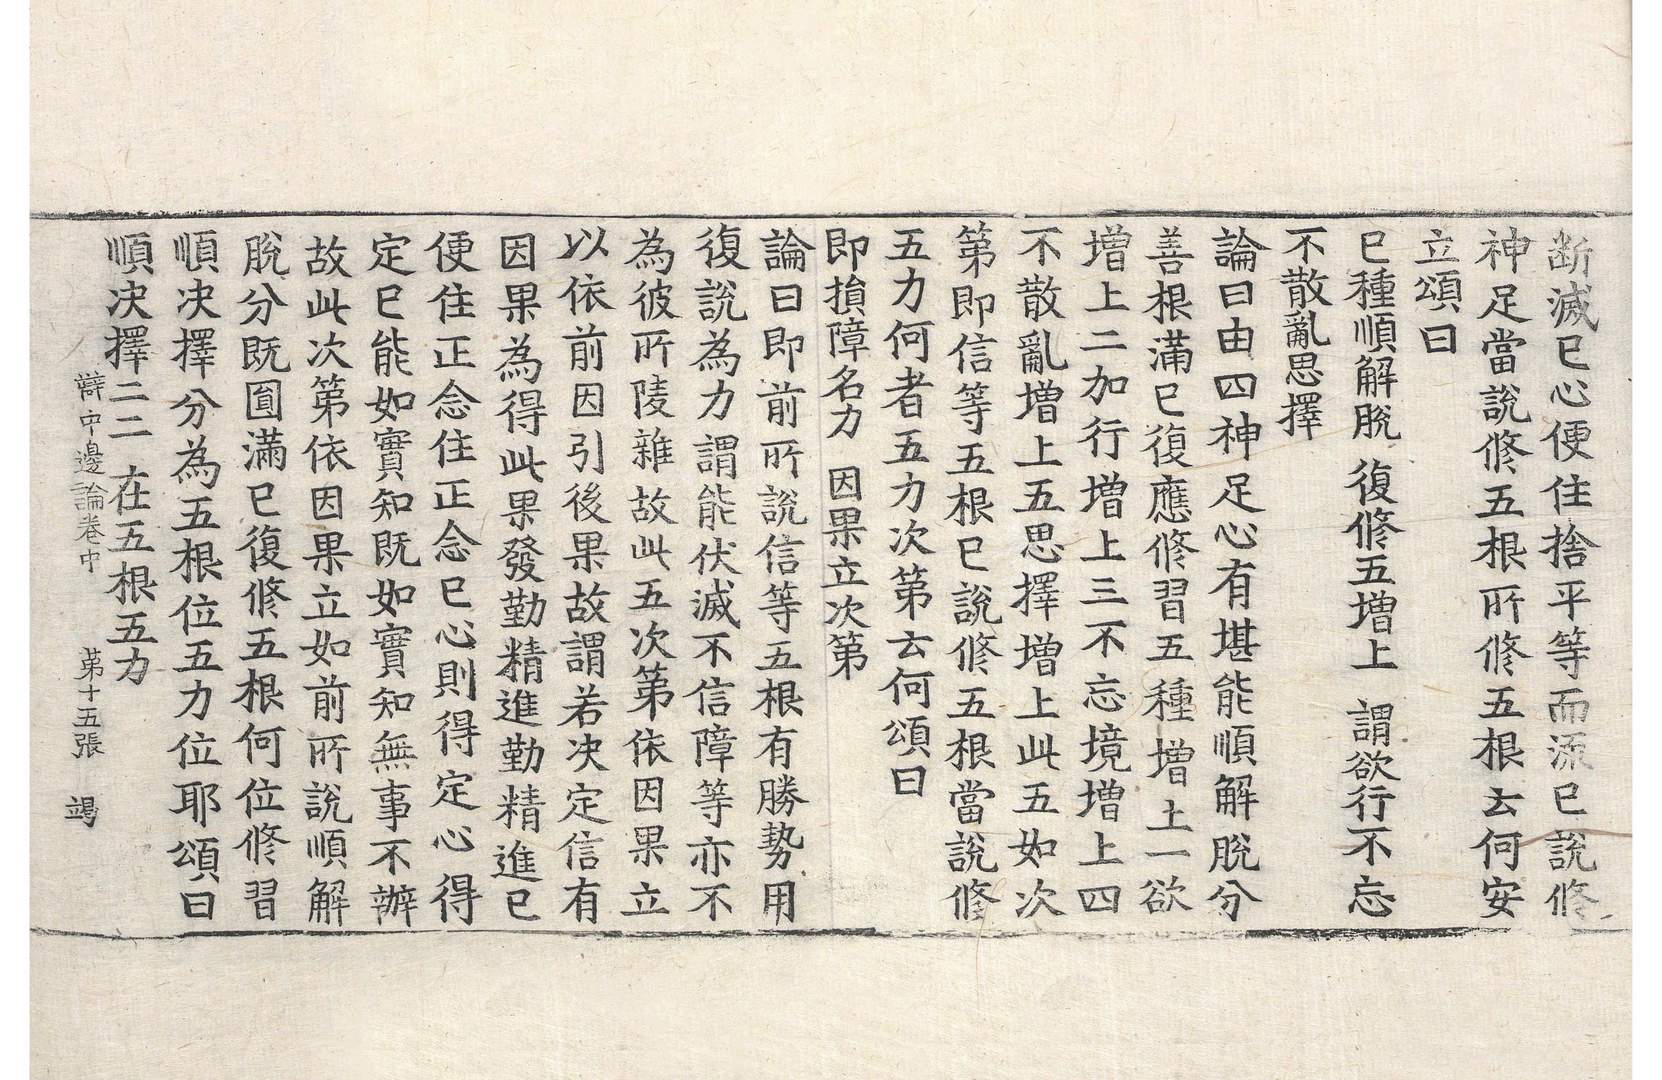 断滅已心便住捨平等而流已說修
神足當說修五根所修五根云何安
立頌曰
已種順解脫　復修五增上　謂欲行不忘
不散亂思擇
論曰由四神足心有堪能順解脫分
善根滿已復應修習五種增上一欲
增上二加行增上三不忘境增上四
不散亂增上五思擇增上此五如次
第即信等五根已說修五根當說修
五力何者五力次第云何頌曰
即損障名力　因果立次第
論曰即前所說信等五根有勝勢用
復說為力謂能伏滅不信障等亦不
為彼所陵雜故此五次第依因果立
以依前因引後果故謂若決定信有
因果為得此果發勤精進勤精進已
便住正念住正念已心則得定心得
定已能如實知既如實知無事不辦
故此次第依因果立如前所說順解
脫分既圓滿已復修五根何位修習
順決擇分為五根位五力位耶頌曰
順決擇二二　在五根五力
辯中邊論卷中　第十五張　竭